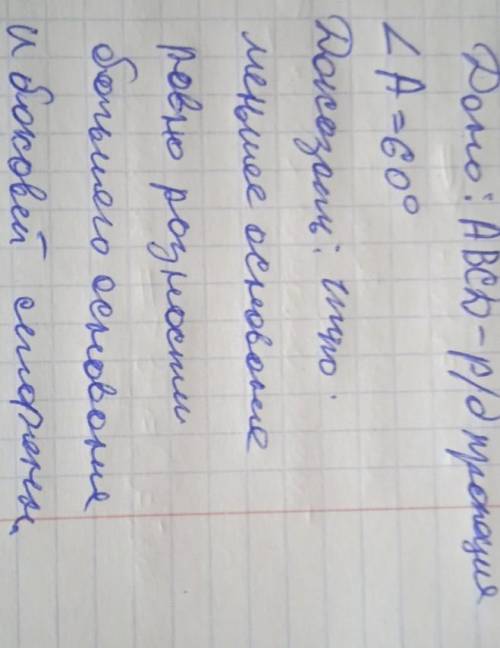 Дано: ABCD - р/б трапеция
∠A = 60°
Доказать: что
меньшее основание
равно разности
большего основания
и боковой стороны.